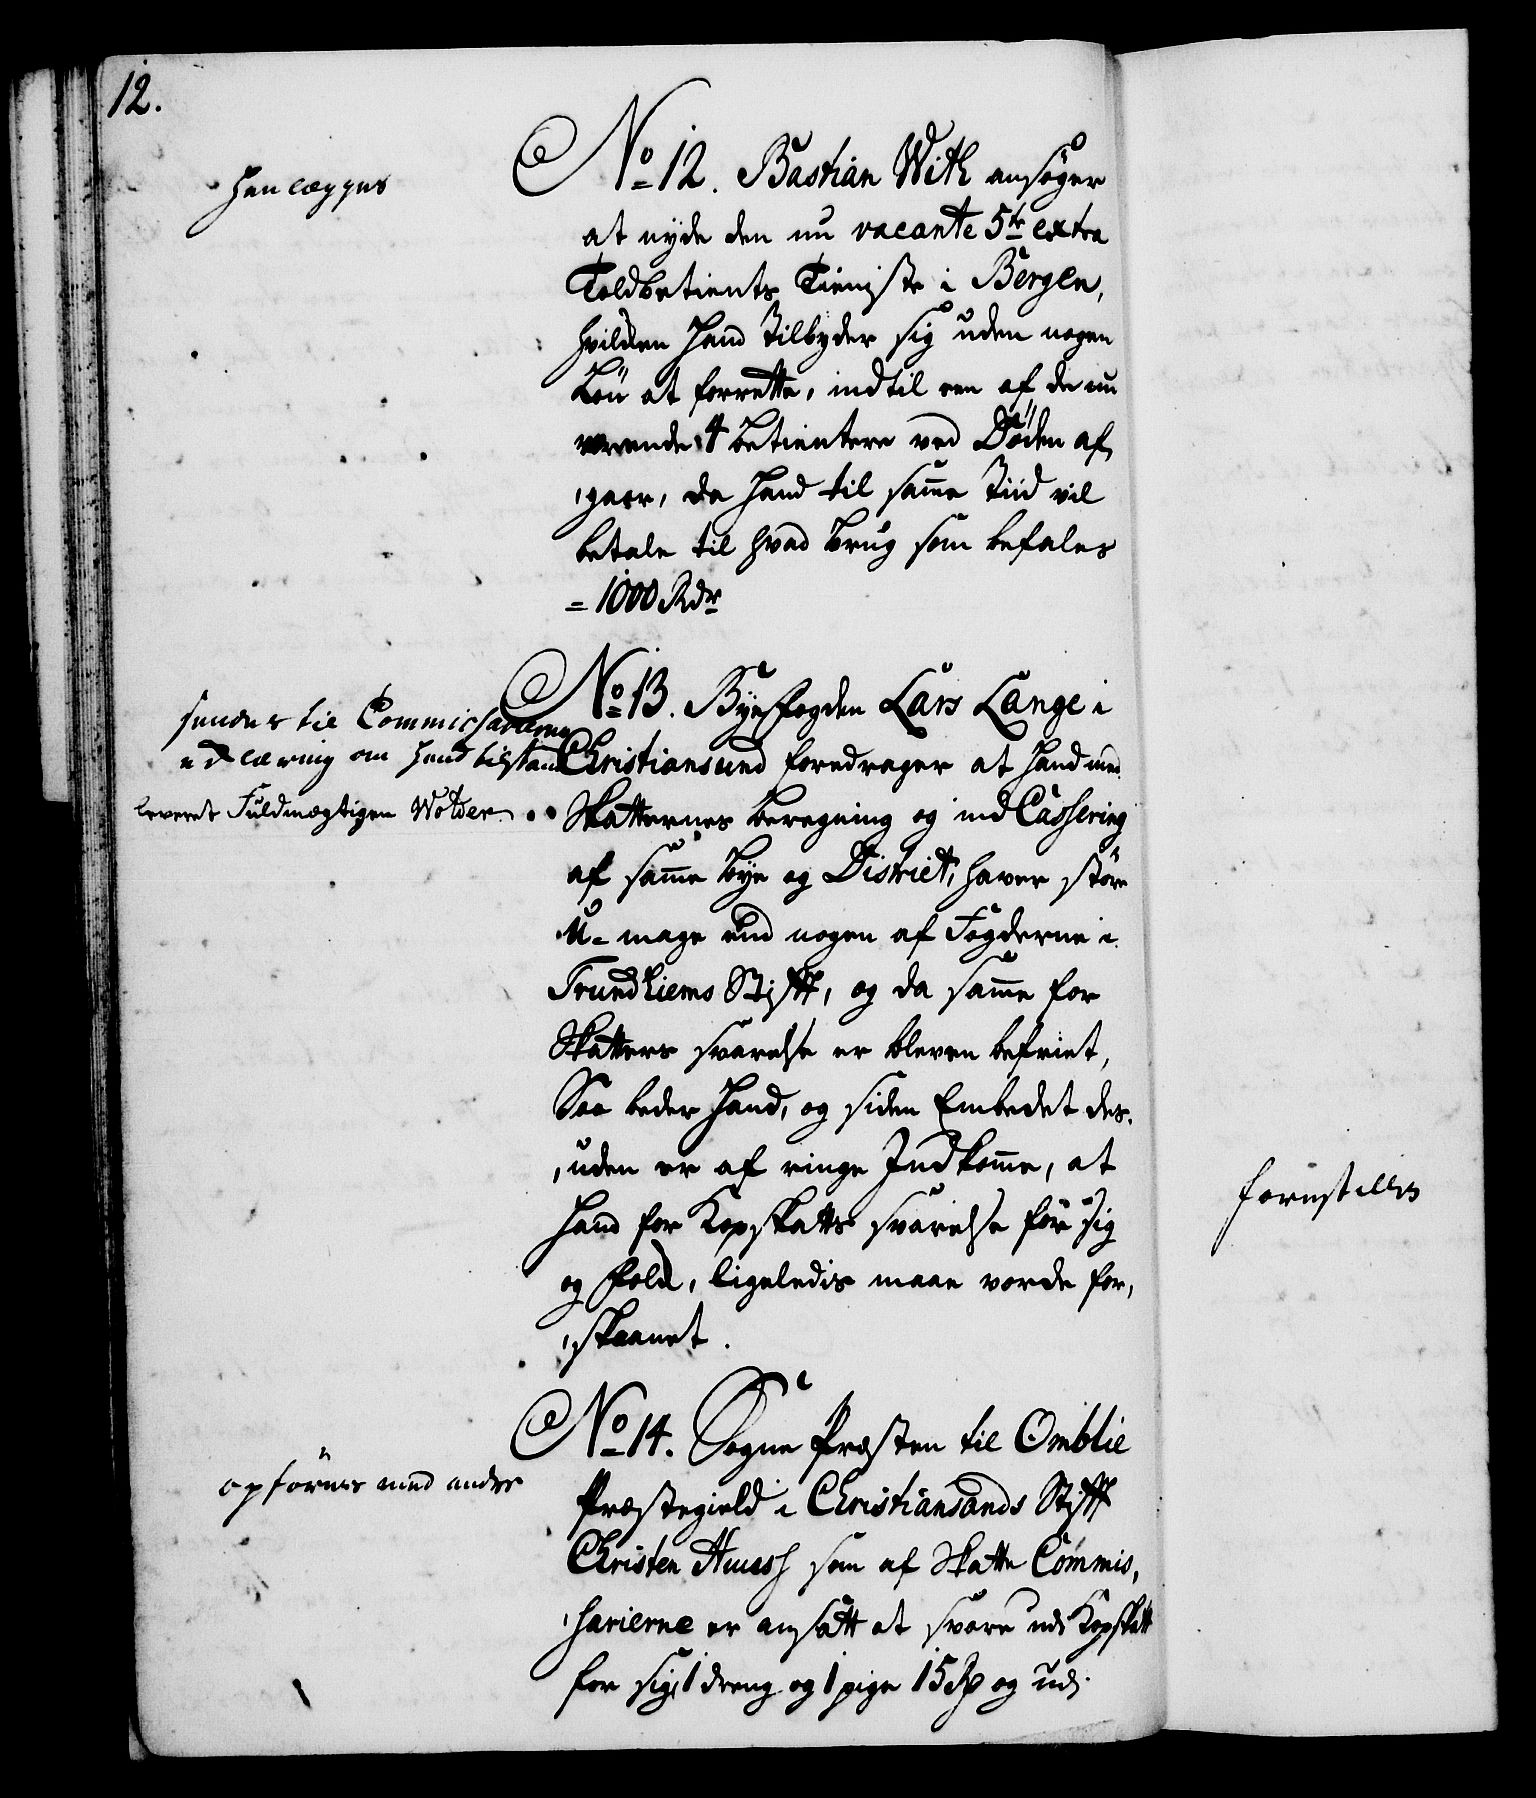 12.
Henlægges
No 12. Bastian With ansøger
at nyde den nu vacante 5te extra
Toldbetients Tieniste i Bergen,
hvilken Hand tilbyder sig uden nogen
Løn at forrette, indtil een af de nu
værende 4 betientere ved Døden af,
,gaar, da Hand til samme Tiid vil
betale til hvad brug som befales
= 1000 Rdr
sendes til Commissarierne
erklæring om hends tilstand
leveret Fuldmægtigen Wolder
No 13. Byefogden Lars Lange i
Christiansund foredrager at Hand med
Skatternes beregning og ind Cassering
af samme bye og District, haver større
U-mage end nogen af Fogderne i
Trundhiems Stifft, og da samme for
Skatters svarelse er bleven befriet,
Saa beder Hand, og siden Embedet des,
,uden er af ringe Indkomme, at
Hand for Kopskatts svarelse for sig
og folck, ligeledis maae vorde for,
,skaanet.
forestilles
opføres med andre
No 14. Sogne Præsten til Omblie
Præstegield i Christiansands Stifft
Christen som af Skatte Commis,
,sarierne er ansatt at svare udi Kopskatt
for sig, 1 dreng og 1 pige 15 Rd og udi